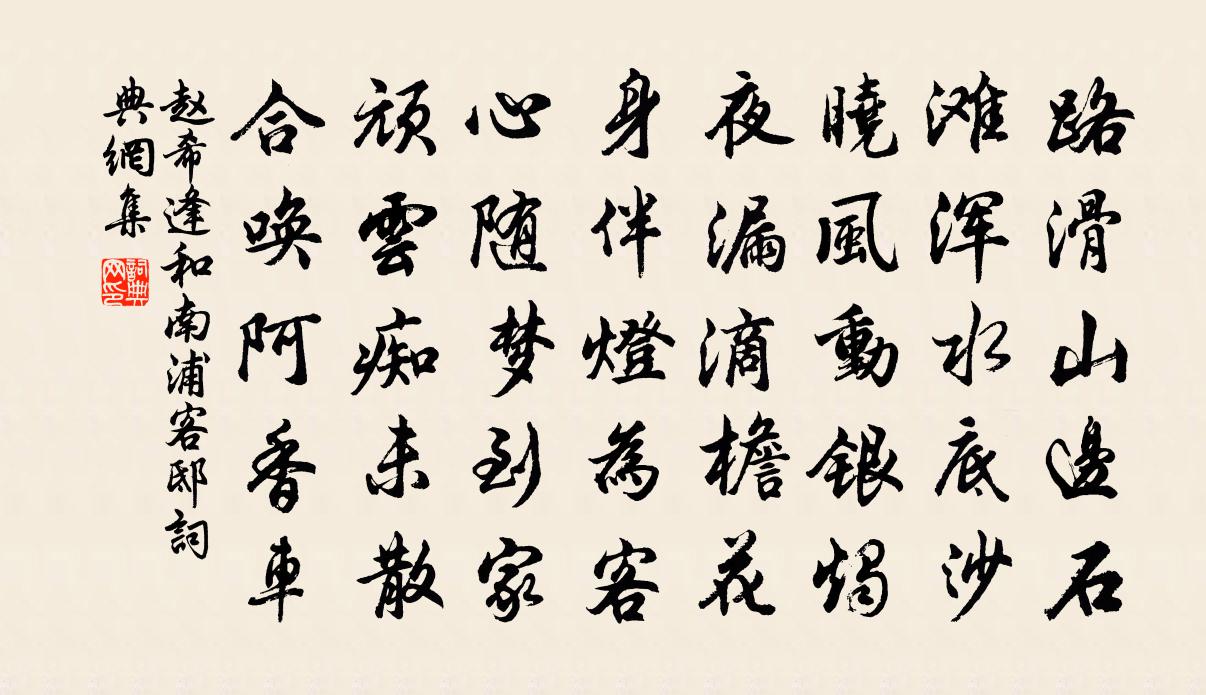 路滑山邊石
滩浑水底沙
曉風動銀燭
夜漏滴檐花
身伴燈為客
心随梦到家
頑雲痴未散
合唤阿香車
赵希逢和南浦客邸詞
典網集
詞典
网印